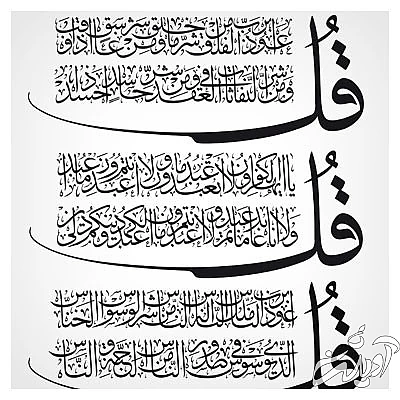 قل
اعوذ برب الفلق من شر ما خلق ومن شر غاسق اذا وقب
ومن شر النفاثات في العقد ومن شر حاسد اذا حسد
قل
يا ايها الكافرون لا اعبد ما تعبدون ولا انتم عابدون ما اعبد
ولا انا عابد ما عبدتم ولا انتم عابدون ما اعبد لكم دينكم ولي دين
قل
اعوذ برب الناس ملك الناس اله الناس من شر الوسواس الخناس
الذي يوسوس في صدور الناس من الجنة و الناس